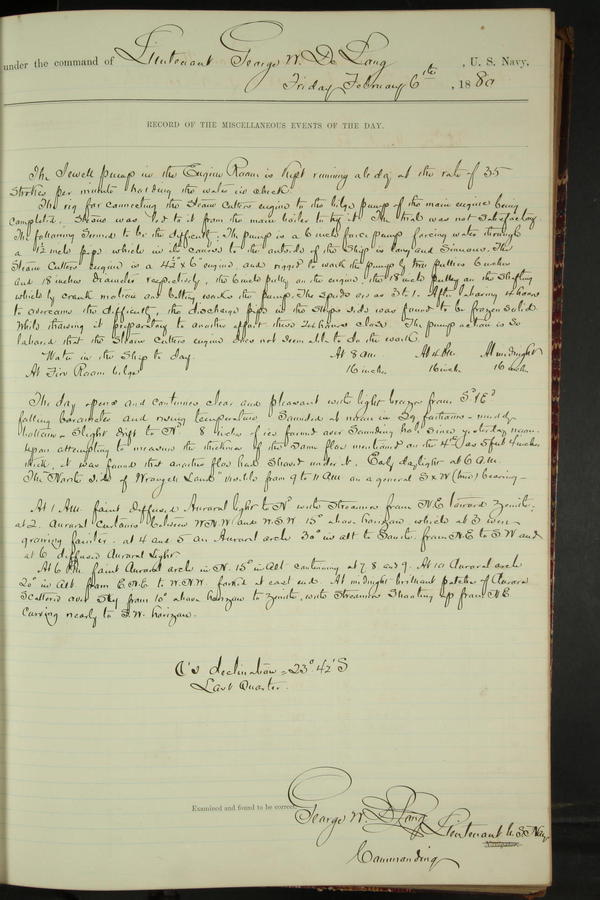 under the command of Lieutenant George W. De Long, U. S. Navy,
Friday February 6th, 1880
RECORD OF THE MISCELLANEOUS EVENTS OF THE DAY.
The Sewell pump in the Engine Room is kept running all day at the rate of 35
Strokes per minute holding the water in check
The rig for connecting the Steam Cutters engine to the bilge pump of the main engine being
completed. Steam was led to it from the main boiler to try it. The trial was not Satisfactory.
The following seemed to be the difficulty: The pump is a 6 inch force pump forcing water through
a 1½ inch pipe which in its course to the outside of the Ship is long and Sinuous. The
Steam Cutters engine is a 4½" x 6" engine, and rigged to work the pump by two pullies 6 inches
and 18 inches diameter respectively, the 6 inch pulley on the engine, the 18 inch pulley on the Shafting
which by crank motion and belting works the pump. The speeds are as 3 to 1. After laboring 4 hours
to overcome the difficulty, the discharge pipe in the Ships side was found to be frozen solid.
While thawing it preparatory to another effort these hours close. The pump action is so
labored that the Steam Cutters engine does not seem able to do the work.
Water in the Ship to day At 8 am. At 4 Pm. At midnight
At Fire Room bilge 16 inches 16 inches 16 inches
The day opens and continues clear and pleasant with light breezes from S'd & E'd
falling barometer and rising temperature. Sounded at noon in 29 fathoms - muddy
bottom - Slight drift to N'd 8 inches of ice formed over Sounding hole Since yesterday noon.
Upon attempting to measure the thickness of the Same floe mentioned on the 4th as 5 feet 4 inches
thick, it was found that another floe had Shoved under it. Early daylight at 6 A.M.
The North side of "Wrangell Land" visible from 9 to 11 AM on a general S x W (true) bearing -
At 1 A.M. faint diffused Auroral light to N'd with Streamers from N.E. toward Zenith;
at 2. Auroral curtains between W.N.W. and W.S.W. 15° above horizon which at 3 were
growing fainter. at 4 and 5 an Auroral arch 30° in alt to South, from N.E. to S.W and
at 6 diffused Auroral light
At 6 P.M. faint Auroral arch in N. 15° in Alt continuing at 7, 8 and 9. At 10 Auroral arch
20° in Alt. from E.N.E. to W.N.W. forked at east end. At midnight brilliant patches of Aurora
Scattered over Sky from 10° above horizon to Zenith, with Streamers Shooting up from N.E.
Curving nearly to S.W. horizon.
☾'s declination = 23° 42' S
Last Quarter.
Examined and found to be correct.
George W. De Long Lieutenant U.S. Navy
Commanding